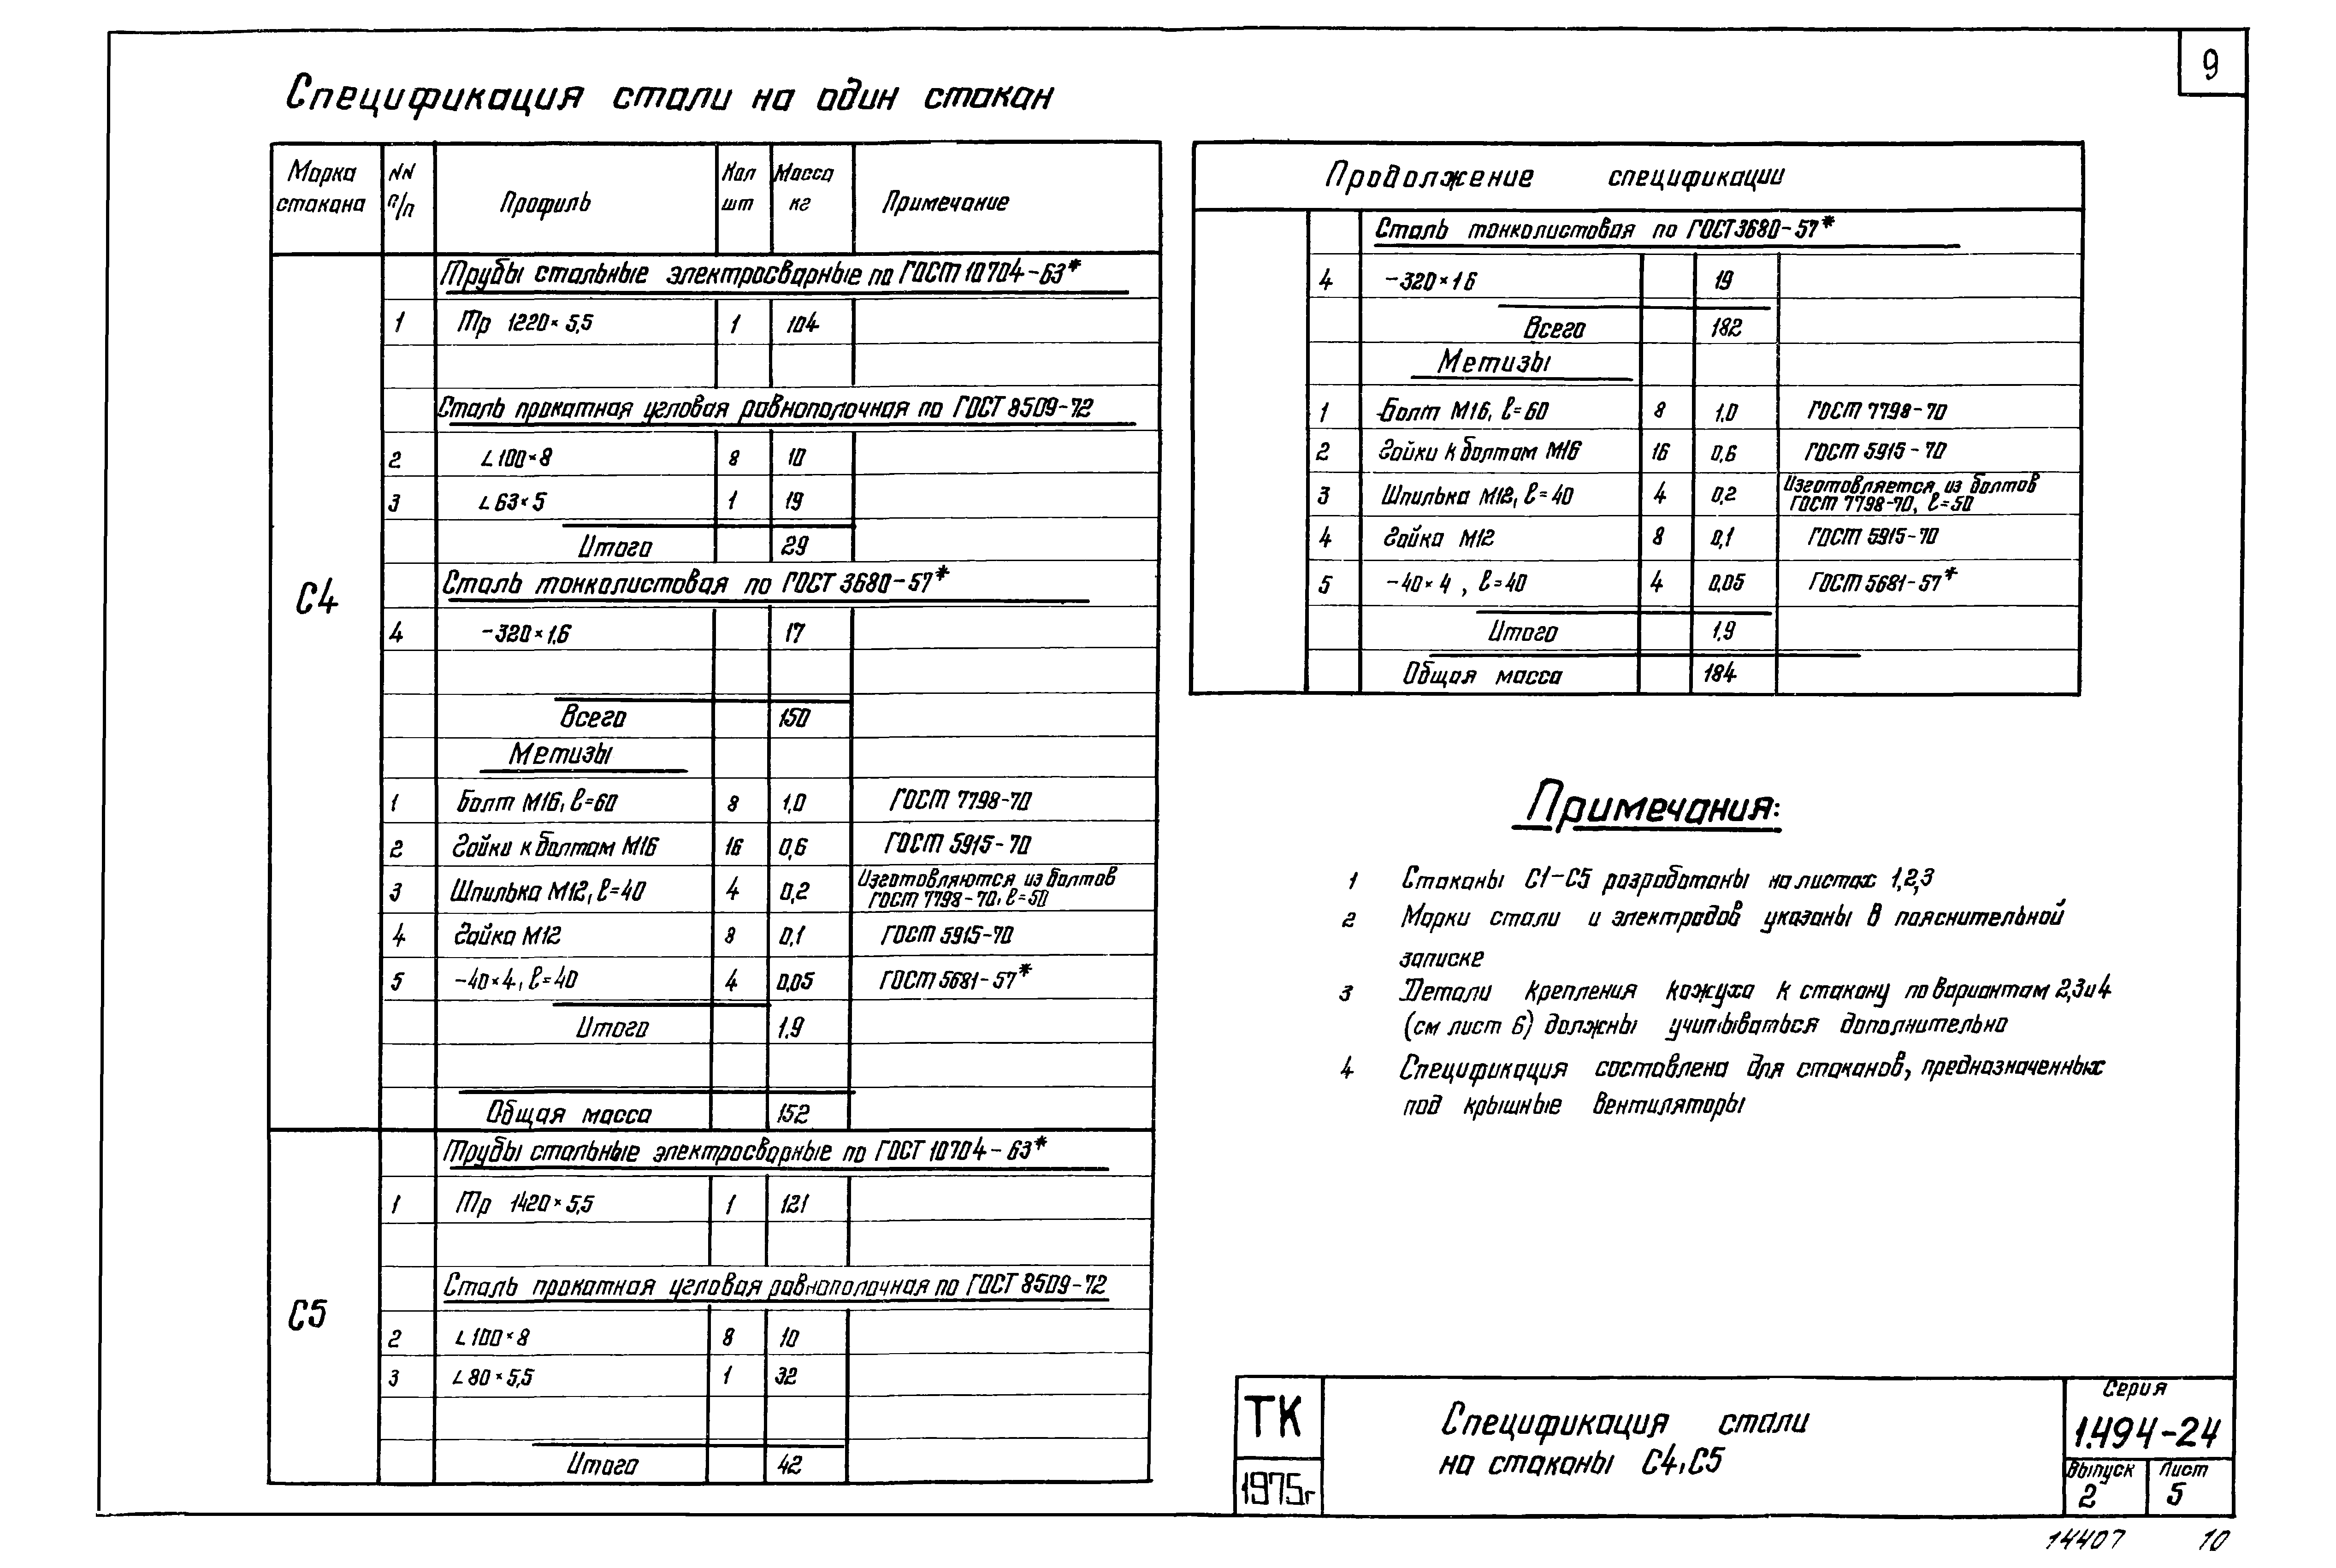 9
Спецификация стали на один стакан
Марка стакана NN п/п Профиль Кол шт Масса кг Примечание
С4
Трубы стальные электросварные по ГОСТ 10704-63*
1 Тр 1220×5,5 1 104
Сталь прокатная угловая равнополочная по ГОСТ 8509-72
2 L100×8 8 10
3 L63×5 1 19
Итого 29
Сталь тонколистовая по ГОСТ 3680-57*
4 -320×1,6 17
Всего 150
Метизы
1 Болт М16, ℓ=60 8 1,0 ГОСТ 7798-70
2 Гайки к болтам М16 16 0,6 ГОСТ 5915-70
3 Шпилька М12, ℓ=40 4 0,2 Изготовляются из болтов ГОСТ 7798-70, ℓ=50
4 Гайка М12 8 0,1 ГОСТ 5915-70
5 -40×4, ℓ=40 4 0,05 ГОСТ 5681-57*
Итого 1,9
Общая масса 152
С5
Трубы стальные электросварные по ГОСТ 10704-63*
1 Тр 1420×5,5 1 121
Сталь прокатная угловая равнополочная по ГОСТ 8509-72
2 L100×8 8 10
3 L80×5,5 1 32
Итого 42
Продолжение спецификации
Сталь тонколистовая по ГОСТ 3680-57*
4 -320×16 19
Всего 182
Метизы
1 Болт М16, ℓ=60 8 1,0 ГОСТ 7798-70
2 Гайки к болтам М16 16 0,6 ГОСТ 5915-70
3 Шпилька М12, ℓ=40 4 0,2 Изготовляется из болтов ГОСТ 7798-70, ℓ=50
4 Гайка М12 8 0,1 ГОСТ 5915-70
5 -40×4, ℓ=40 4 0,05 ГОСТ 5681-57*
Итого 1,9
Общая масса 184
Примечания:
1 Стаканы С1-С5 разработаны на листах 1,2,3
2 Марки стали и электродов указаны в пояснительной
записке
3 Детали крепления кожуха к стакану по вариантам 2,3 и 4
(см лист 6) должны учитываться дополнительно
4 Спецификация составлена для стаканов, предназначенных
под крышные вентиляторы
ТК
1975г
Спецификация стали
на стаканы С4, С5
Серия
1.494-24
Выпуск 2
Лист 5
14407 10